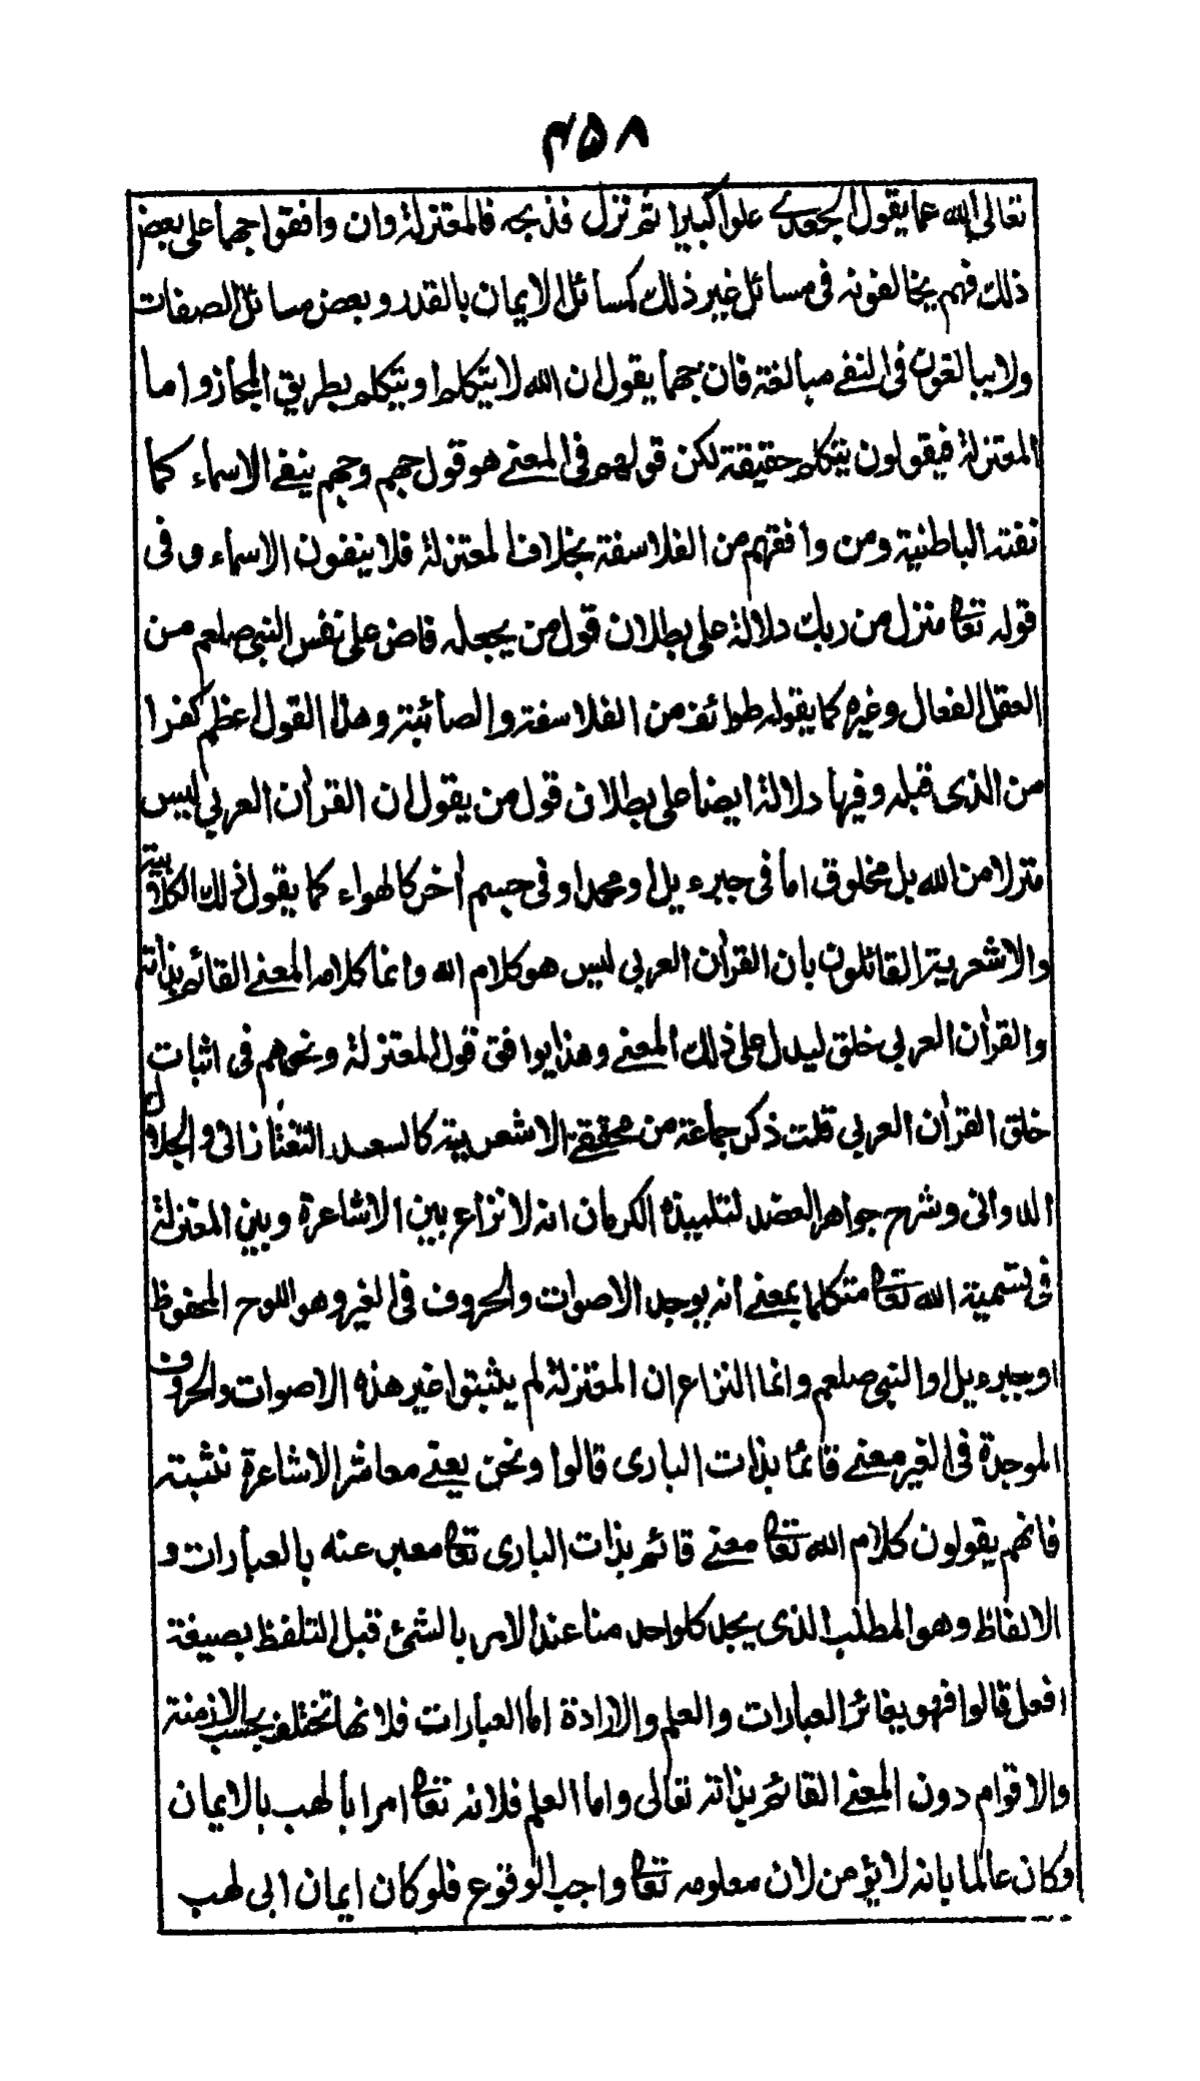 ۴۵۸
تعالى الله عما يقول الجعد علوا كبيرا ثم نزل فذبحه فالمعتزلة وان وافقوا جهما على بعض
ذلك فهم يخالفونه فى مسائل غير ذلك كمسائل الايمان بالقدر وبعض مسائل الصفات
ولا يبالغون فى النفى مبالغته فان جهما يقول ان الله لا يتكلم او يتكلم بطريق المجاز واما
المعتزلة فيقولون يتكلم حقيقة لكن قولهم فى المعنے هو قول جهم وجهم ينفے الاسماء كما
نفته الباطنية ومن وافقهم من الفلاسفة بخلاف المعتزلة فلا ينفون الاسماء وفى
قوله تعا منزل من ربك دلالة على بطلان قول من يجعله فاض على نفس النبى صلعم من
العقل الفعال وغيره كما يقوله طوائف من الفلاسفة والصائبة وهذا القول اعظم كفرا
من الذى قبله وفيها دلالة ايضا على بطلان قول من يقول ان القرأن العربي ليس
منزلا من الله بل مخلوق اما فى جبرءيل او محمد او فى جسم أخر كالهواء كما يقول ذلك الكلابية
والاشعرية القائلون بان القرأن العربى ليس هو كلام الله وانما كلامه المعنے القائم بذاته
والقرأن العربي خلق ليدل على ذلك المعنے وهذا يوافق قول المعتزلة ونحوهم فى اثبات
خلق القرأن العربي قلت ذكر جماعة من محققے الاشعرية كالسعد التفتازانى والجلال
الدوانى وشرح جواهر العضد لتلميذه الكرمان انه لا نزاع بين الاشاعرة وبين المعتزلة
فى تسمية الله تعا متكلما بمعنے انه يوجد الاصوات والحروف فى الغير وهو اللوح المحفوظ
او جبرءيل او النبى صلعم وانما النزاع ان المعتزلة لم يثبتوا غير هذه الاصوات والحروف
الموجدة فى الغير معنے قائما بذات البارى قالوا ونحن يعنے معاشر الاشاعرة نثبته
فانهم يقولون كلام الله تعا معنے قائم بذات البارى تعا معبر عنه بالعبارات و
الالفاظ وهو المطلب الذى يجد كل واحد منا عند الامر بالشئ قبل التلفظ بصيغة
افعل قالوا فهو يغائر العبارات والعلم والارادة اما العبارات فلانها تختلف بحسب الازمنة
والاقوام دون المعنے القائم بذاته تعالى واما العلم فلانه تعا امر ابا لهب بالايمان
وكان عالما بانه لا يؤمن لان معلومه تعا واجب الوقوع فلو كان ايمان ابى لهب